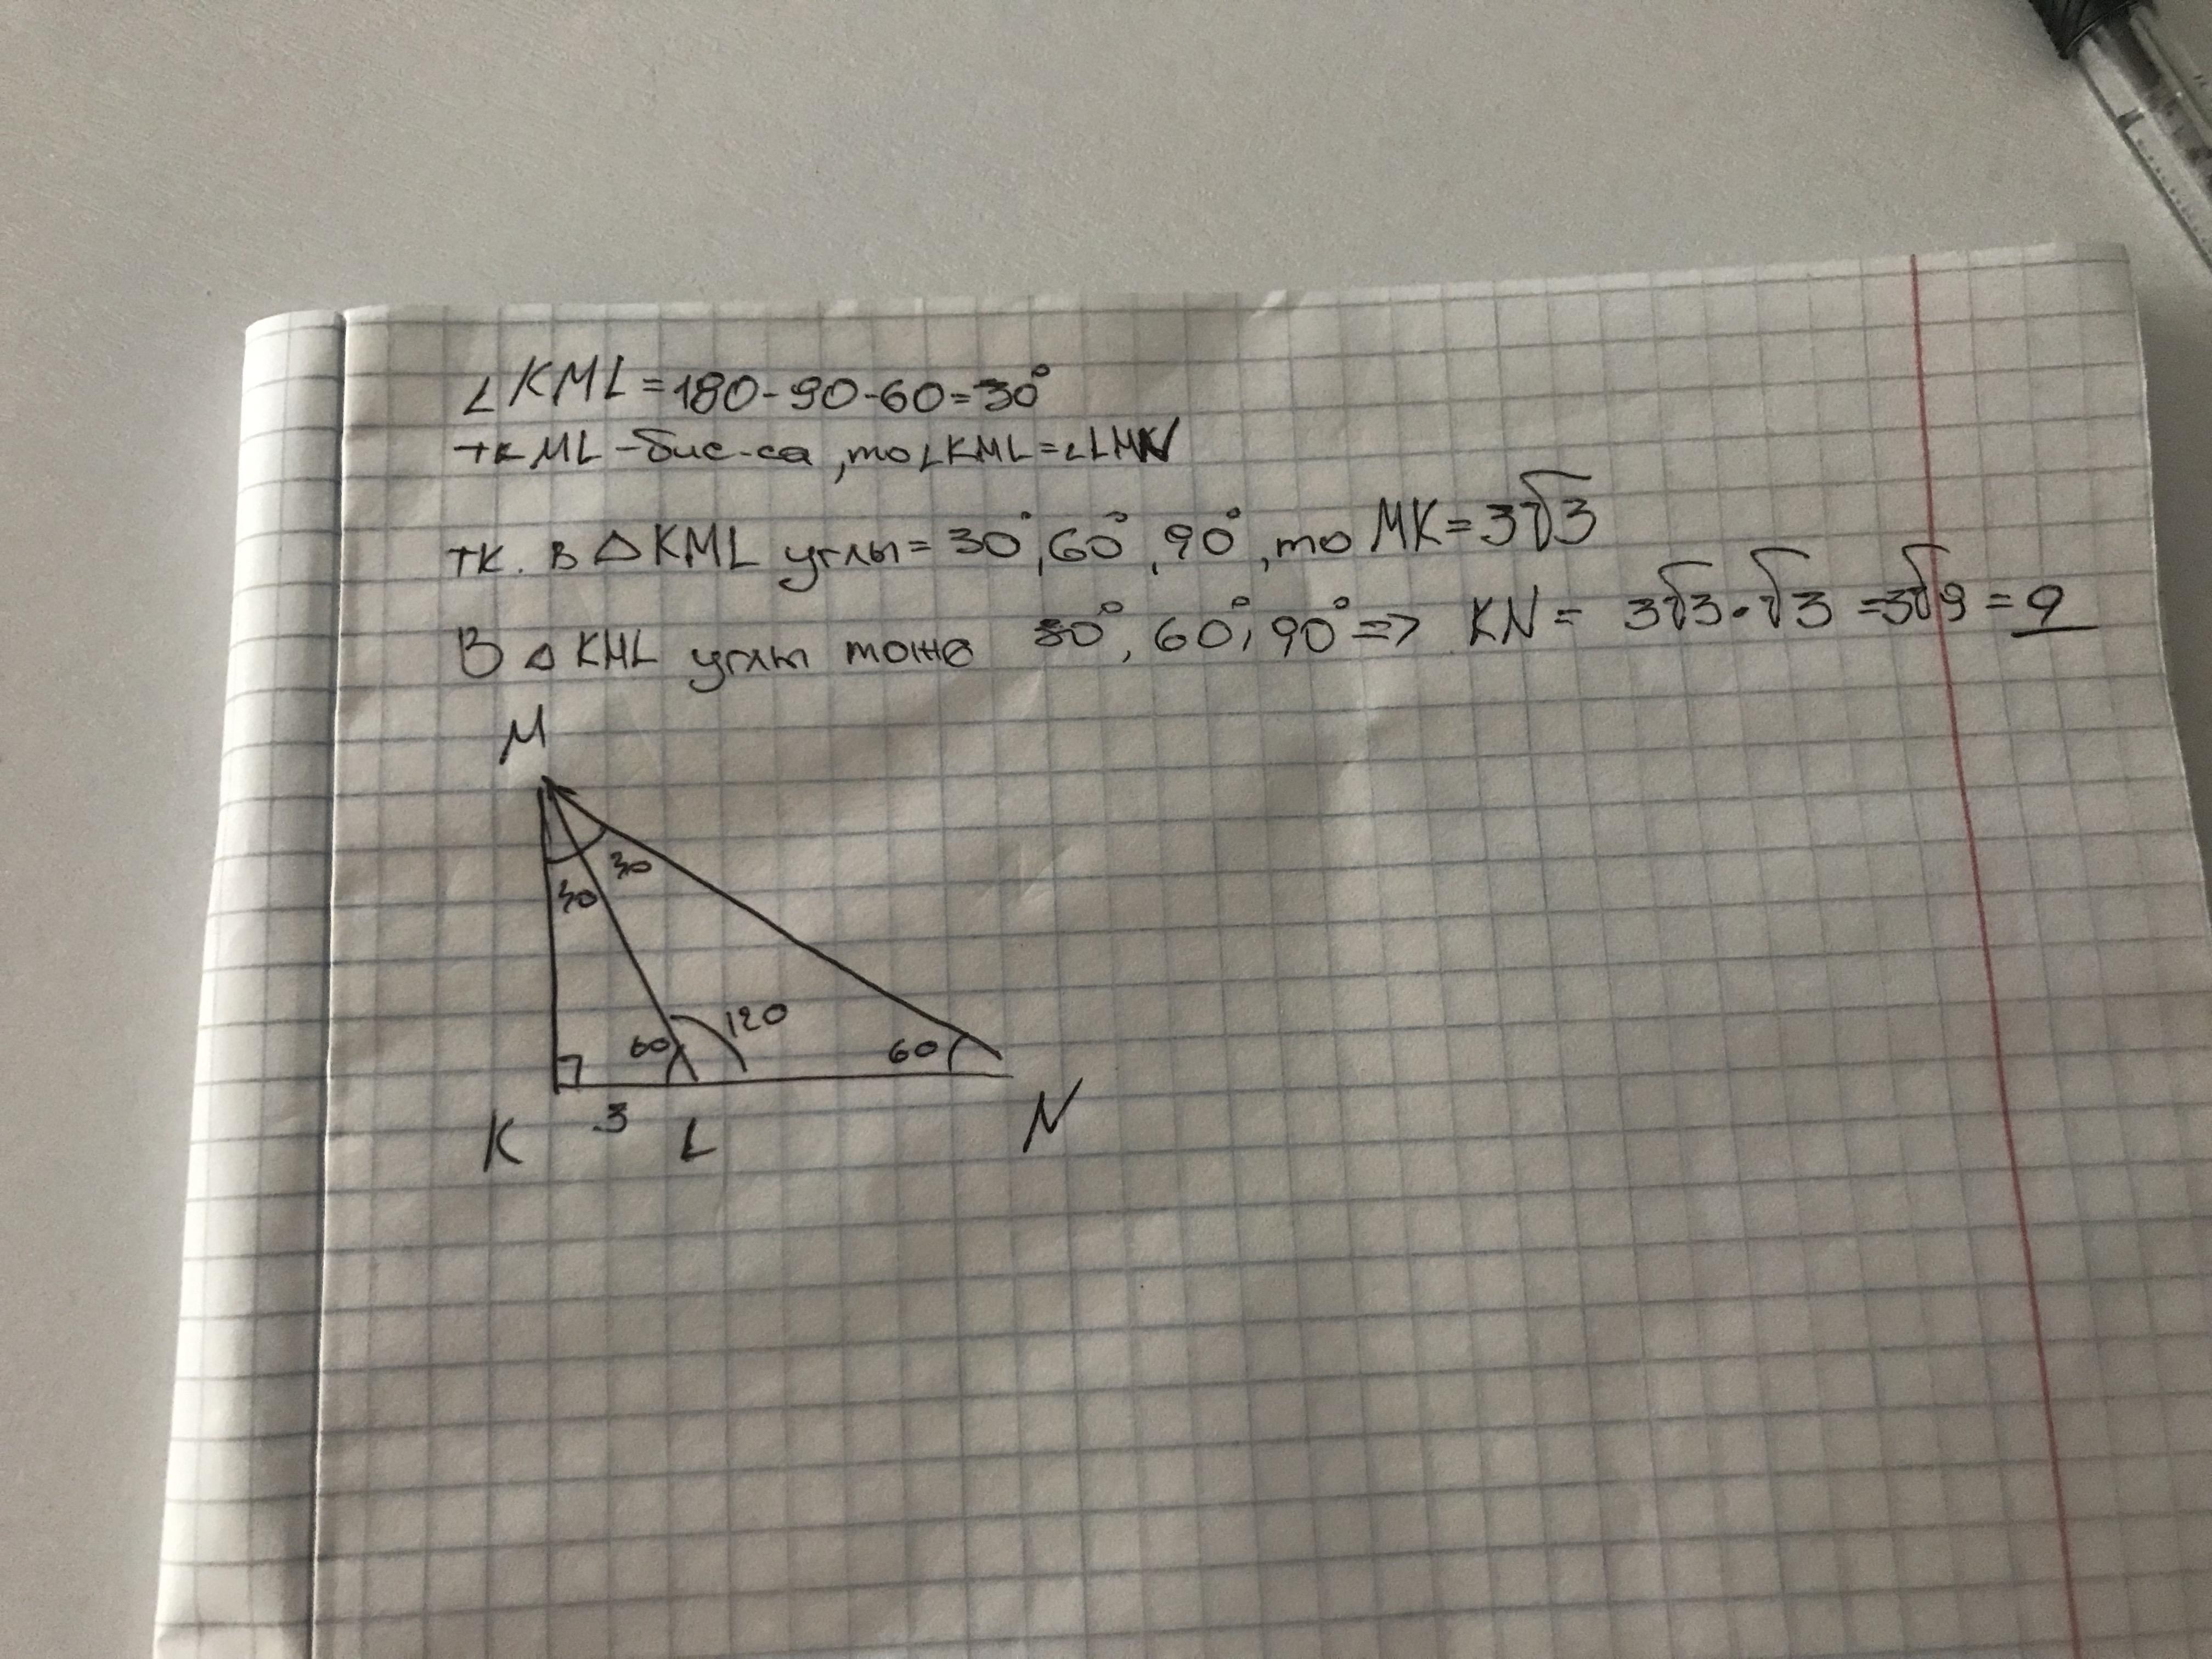 ∠KML=180-90-60=30°
тк ML-бис-са, то ∠KML=∠LMN
тк. в △KML углы=30°, 60°, 90°, то MK=3√3
В △KML углы тоже 30°, 60°, 90° => KN= 3√3·√3 =3√9=9
M
30
30
120
60
60
3
K L N